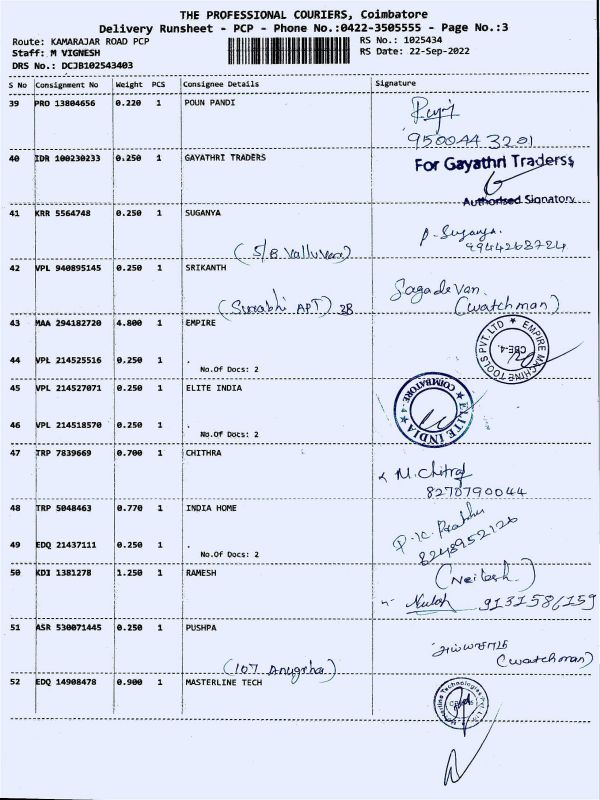 THE PROFESSIONAL COURIERS, Coimbatore
Delivery Runsheet - PCP - Phone No.:0422-3505555 - Page No.:3
Route: KAMARAJAR ROAD PCP RS No.: 1025434
Staff: M VIGNESH RS Date: 22-Sep-2022
DRS No.: DCJB102543403
S No Consignment No Weight PCS Consignee Details Signature
39 PRO 13804656 0.220 1 POUN PANDI
9500443201
40 IDR 100230233 0.250 1 GAYATHRI TRADERS For Gayathri Traders
Authorised Signatory
41 KRR 5564748 0.250 1 SUGANYA P. Suganya.
9944268724
(S/B. Valluvar)
42 VPL 940895145 0.250 1 SRIKANTH Jagadevan.
(Surabhi APT) 2B (watchman)
43 MAA 294182720 4.800 1 EMPIRE EMPIRE MACHINE TOOLS PVT.LTD
CBE-4
44 VPL 214525516 0.250 1 .
No.Of Docs: 2
45 VPL 214527071 0.250 1 ELITE INDIA ELITE INDIA
COIMBATORE - 4
46 VPL 214518570 0.250 1 .
No.Of Docs: 2
47 TRP 7839669 0.700 1 CHITHRA
M. Chitra
8270790044
48 TRP 5048463 0.770 1 INDIA HOME P.K. Prabhu
8248952126
49 EDQ 21437111 0.250 1 .
No.Of Docs: 2
50 KDI 1381278 1.250 1 RAMESH (Neilesh)
9131586159
51 ASR 530071445 0.250 1 PUSHPA
(107 Anugrha) (watchman)
52 EDQ 14908478 0.900 1 MASTERLINE TECH